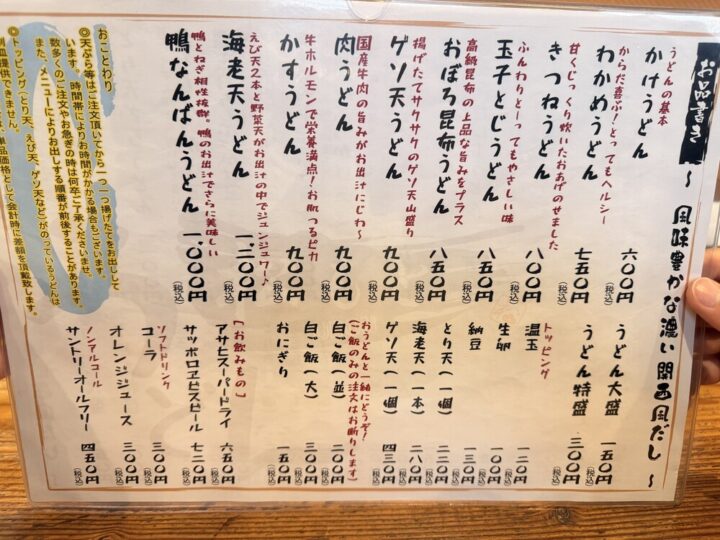 お品書き
～ 風味豊かな濃い関西風だし ～
うどんの基本
かけうどん 六〇〇円(税込)
からだ喜ぶ!とってもヘルシー
わかめうどん 七五〇円(税込)
甘くじっくり炊いたおあげのせました
きつねうどん 八〇〇円(税込)
ふんわりと～ってもやさしい味
玉子とじうどん 八五〇円(税込)
高級昆布の上品な旨みをプラス
おぼろ昆布うどん 八五〇円(税込)
揚げたてサクサクのゲソ天山盛り
ゲソ天うどん 九〇〇円(税込)
国産牛肉の旨みがお出汁にじわ～
肉うどん 九〇〇円(税込)
牛ホルモンで栄養満点!お肌つるピカ
かすうどん 九〇〇円(税込)
えび天2本と野菜天がお出汁の中でジュンジュワー♪
海老天うどん 一、二〇〇円(税込)
鴨とねぎ相性抜群。鴨のお出汁でさらに美味しい
鴨なんばんうどん 一、〇〇〇円(税込)
うどん大盛 一五〇円(税込)
うどん特盛 三〇〇円(税込)
トッピング
温玉 一二〇円(税込)
生卵 一〇〇円(税込)
納豆 一三〇円(税込)
とり天(一個) 二二〇円(税込)
海老天(一本) 二八〇円(税込)
ゲソ天(一個) 四三〇円(税込)
おうどんと一緒にどうぞ!
(ご飯のみの注文はお断りします)
白ご飯(並) 二〇〇円(税込)
白ご飯(大) 三〇〇円(税込)
おにぎり 一五〇円(税込)
[お飲みもの]
アサヒスーパードライ 六五〇円(税込)
サッポロヱビスビール 七二〇円(税込)
ソフトドリンク
コーラ 三〇〇円(税込)
オレンジジュース 三〇〇円(税込)
ノンアルコール
サントリーオールフリー 四五〇円(税込)
おことわり
◎天ぷら等はご注文頂いてから一つ一つ揚げたてをお出しして
います。時間帯によりお時間がかかる場合もございます。
数多くのご注文やお急ぎの時は何卒ご了承くださいませ。
また、メニューによりお出しする順番が前後することがあります。
◎トッピング(とり天、えび天、ゲソ天など)がのっているうどんは
単品価格として会計時に差額を頂戴致します。
提供できません。